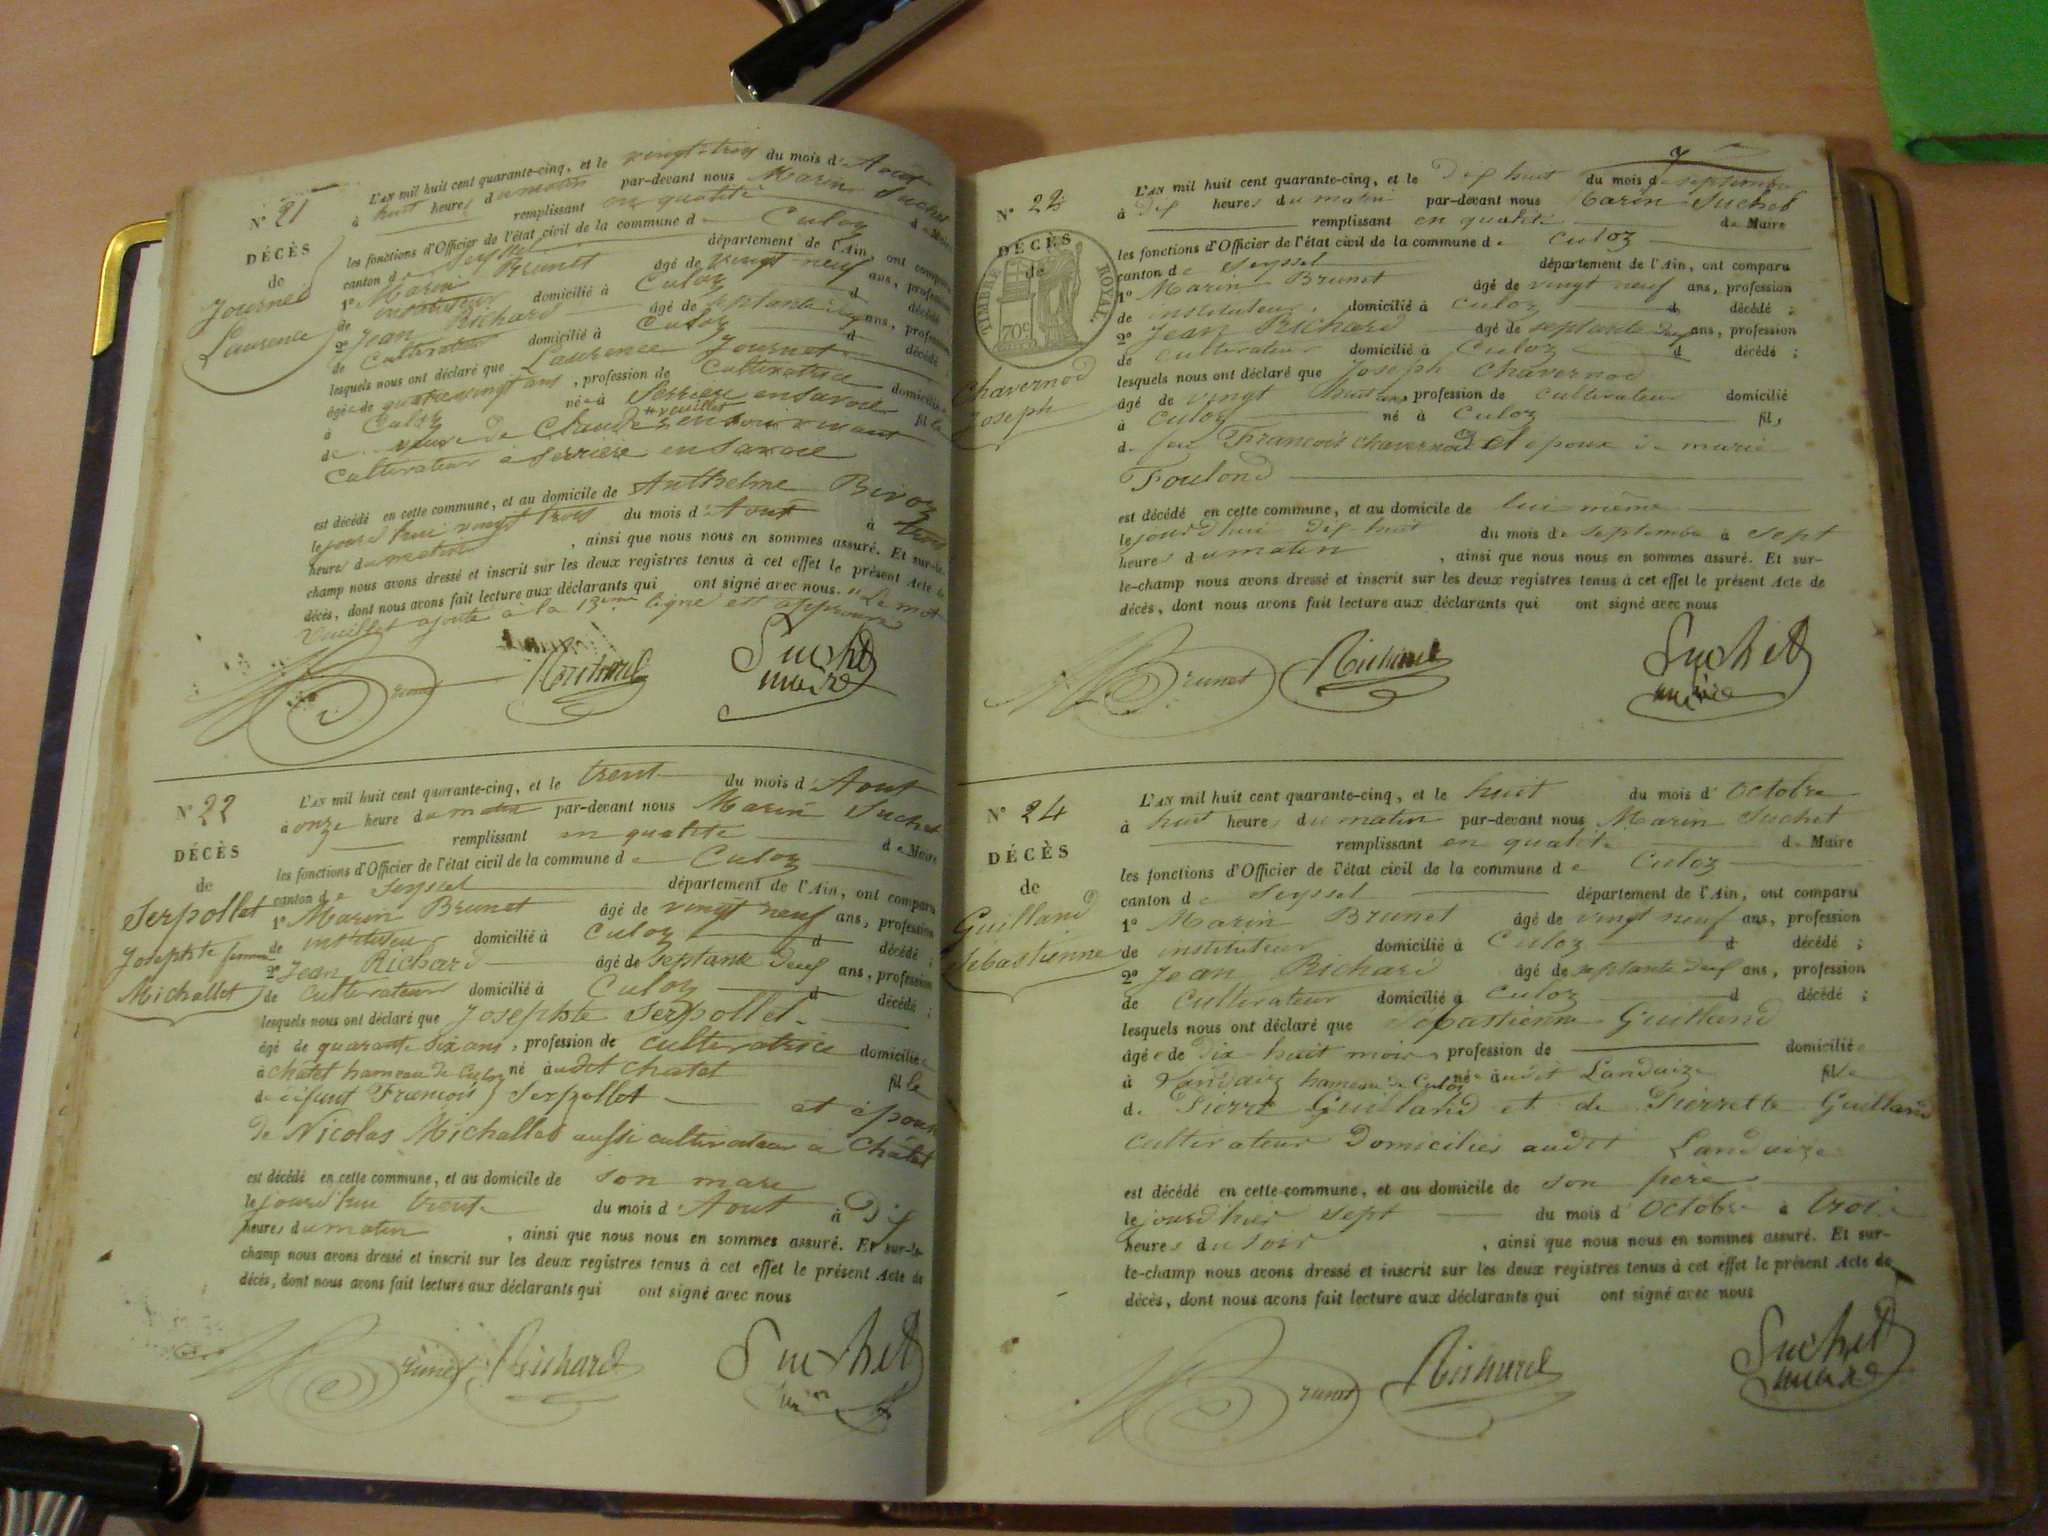 N° 21
DÉCÈS
de
Journet
Laurence
L'AN mil huit cent quarante-cinq, et le vingt-trois du mois d'Aout
à huit heures du matin par-devant nous Marin Suchet
remplissant en qualité de Maire
les fonctions d'Officier de l'état civil de la commune de Culoz
canton de Seyssel département de l'Ain, ont comparu
1° Marin Brunet âgé de vingt neuf ans, profession
de instituteur domicilié à Culoz d décédé
2° Jean Richard âgé de septante deux ans, profession
de cultivateur domicilié à Culoz d décédé
lesquels nous ont déclaré que Laurence Journet
âgée de quatre vingt ans, profession de Cultivatrice domiciliée
à Culoz née à Serriere en savoie fille
de veuve de Claude vuillet en son vivant
Cultivateur à Serriere en Savoie
est décédé en cette commune, et au domicile de Anthelme Beroz
le jourd'hui vingt trois du mois d'Aout à trois
heures du matin, ainsi que nous nous en sommes assuré. Et sur-le-
champ nous avons dressé et inscrit sur les deux registres tenus à cet effet le présent Acte de
décès, dont nous avons fait lecture aux déclarants qui ont signé avec nous. "Le mot
Vuillet ajouté à la 13eme ligne est approuvé
Brunet Richard Suchet
maire
N° 22
DÉCÈS
de
Serpollet
Josephte femme
Michallet
L'AN mil huit cent quarante-cinq, et le trent du mois d'Aout
à onze heure du matin par-devant nous Marin Suchet
remplissant en qualité de Maire
les fonctions d'Officier de l'état civil de la commune de Culoz
canton de Seyssel département de l'Ain, ont comparu
1° Marin Brunet âgé de vingt neuf ans, profession
de instituteur domicilié à Culoz d décédé ;
2° Jean Richard âgé de septante deux ans, profession
de cultivateur domicilié à Culoz d décédé ;
lesquels nous ont déclaré que Josephte Serpollet
âgé de quarante six ans, profession de cultivatrice domiciliée
à chatet hameau de Culoz né audit chatet fille
de défunt Francois Serpollet et épouse
de Nicolas Michallet aussi cultivateur à Châtet
est décédé en cette commune, et au domicile de son mare
le jourd'hui trente du mois d'Aout à Dix
heures du matin, ainsi que nous nous en sommes assuré. Et sur-le-
champ nous avons dressé et inscrit sur les deux registres tenus à cet effet le présent Acte de
décès, dont nous avons fait lecture aux déclarants qui ont signé avec nous
Brunet Richard Suchet
N° 23
DÉCÈS
de
TIMBRE ROYAL
70c
Chavernod
Joseph
L'AN mil huit cent quarante-cinq, et le Dix huit du mois de septembre
à Dix heures du matin par-devant nous Marin Suchet
remplissant en qualité de Maire
les fonctions d'Officier de l'état civil de la commune de Culoz
canton de Seyssel département de l'Ain, ont comparu
1° Marin Brunet âgé de vingt neuf ans, profession
de instituteur, domicilié à Culoz d décédé ;
2° Jean Richard âgé de septante deux ans, profession
de cultivateur domicilié à Culoz d décédé ;
lesquels nous ont déclaré que Joseph Chavernod
âgé de vingt huit ans profession de cultivateur domicilié
à Culoz né à Culoz fils
de feu Francois chavernod et époux de marie
Foulond
est décédé en cette commune, et au domicile de lui même
le jourd'hui dix huit du mois de septembre à sept
heures du matin, ainsi que nous nous en sommes assuré. Et sur-
le-champ nous avons dressé et inscrit sur les deux registres tenus à cet effet le présent Acte de
décès, dont nous avons fait lecture aux déclarants qui ont signé avec nous
Brunet Richard Suchet
maire
N° 24
DÉCÈS
de
Guilland
Sébastienne
L'AN mil huit cent quarante-cinq, et le huit du mois d'Octobre
à huit heures du matin par-devant nous Marin Suchet
remplissant en qualité de Maire
les fonctions d'Officier de l'état civil de la commune de Culoz
canton de Seyssel département de l'Ain, ont comparu
1° Marin Brunet âgé de vingt neuf ans, profession
de instituteur domicilié à Culoz d décédé ;
2° Jean Richard âgé de septante deux ans, profession
de Cultivateur domicilié à Culoz d décédé ;
lesquels nous ont déclaré que Sébastienne Guilland
âgée de Dix huit mois profession de domiciliée
à Landaize hameau de Culoz née audit Landaize fille
de Pierre Guilland et de Pierrette Guilland
cultivateur Domiciliés audit Landaize
est décédé en cette commune, et au domicile de son père
le jourd'hier sept du mois d'Octobre à trois
heures du soir, ainsi que nous nous en sommes assuré. Et sur-
le-champ nous avons dressé et inscrit sur les deux registres tenus à cet effet le présent Acte de
décès, dont nous avons fait lecture aux déclarants qui ont signé avec nous
Brunet Richard Suchet
maire